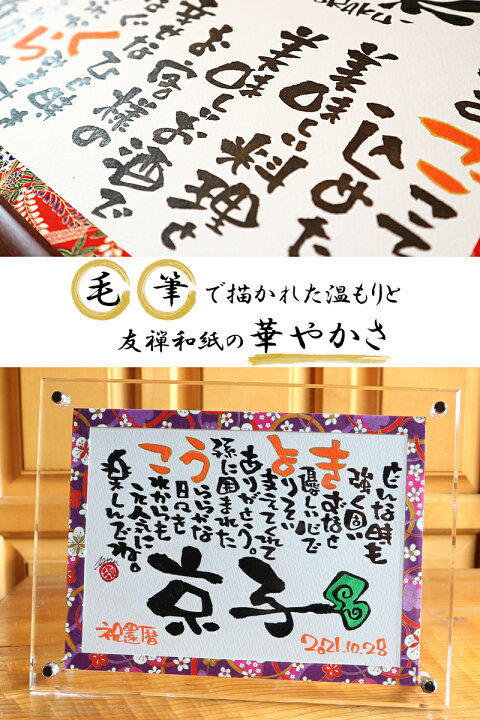 美味しい
料理と
美味しい
お酒で
お客様の
幸せな
らく
毛筆で描かれた温もりと
友禅和紙の華やかさ
どんな時も
強く固い
きずなと
優しい心で
よりそい
支えてくれて
ありがとう。
孫に囲まれた
うららかな
日々を
これからも
元気に
楽しんでね。
京子
祝還暦
2021.10.28